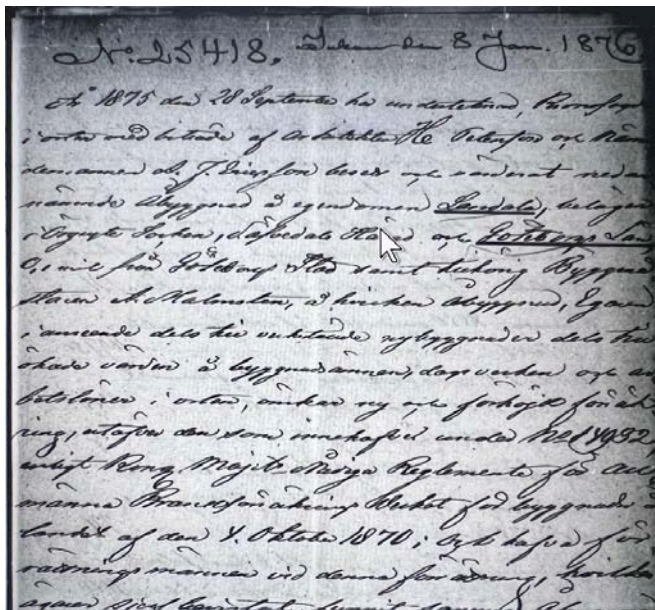 No. 25418. den 8 Jan. 1876
År 1875 den 28 September har undertecknad, Kronofogde
i orten med biträde af Arkitekten H. Peterson och Näm
demannen A. J. Ericsson besett och värderat nedan
nämnde Åbyggnad å egendomen Laudala, belägen
i Örgryte Socken, Säfvedals Härad och Göteborgs Län
0,1 mil från Göteborgs Stad samt tillhörig Byggmä
staren A. Malmsten, å hvilken åbyggnad, Egaren
i anseende dels till verkstälde nybyggnader dels till
ökade värden å byggnadsämnen, dagsverken och ar
betslöner i orten, önskar ny och förhöjd försäk
ring, utöfver den som innehafves under No 14932
enligt Kongl. Majts Nådiga Reglemente för All
männa Brandförsäkrings Verket för byggnader å
landet af den 4. Oktober 1870; och hafva för
rättningsmännen vid denna förrättning, hvilken
ägaren sjelf